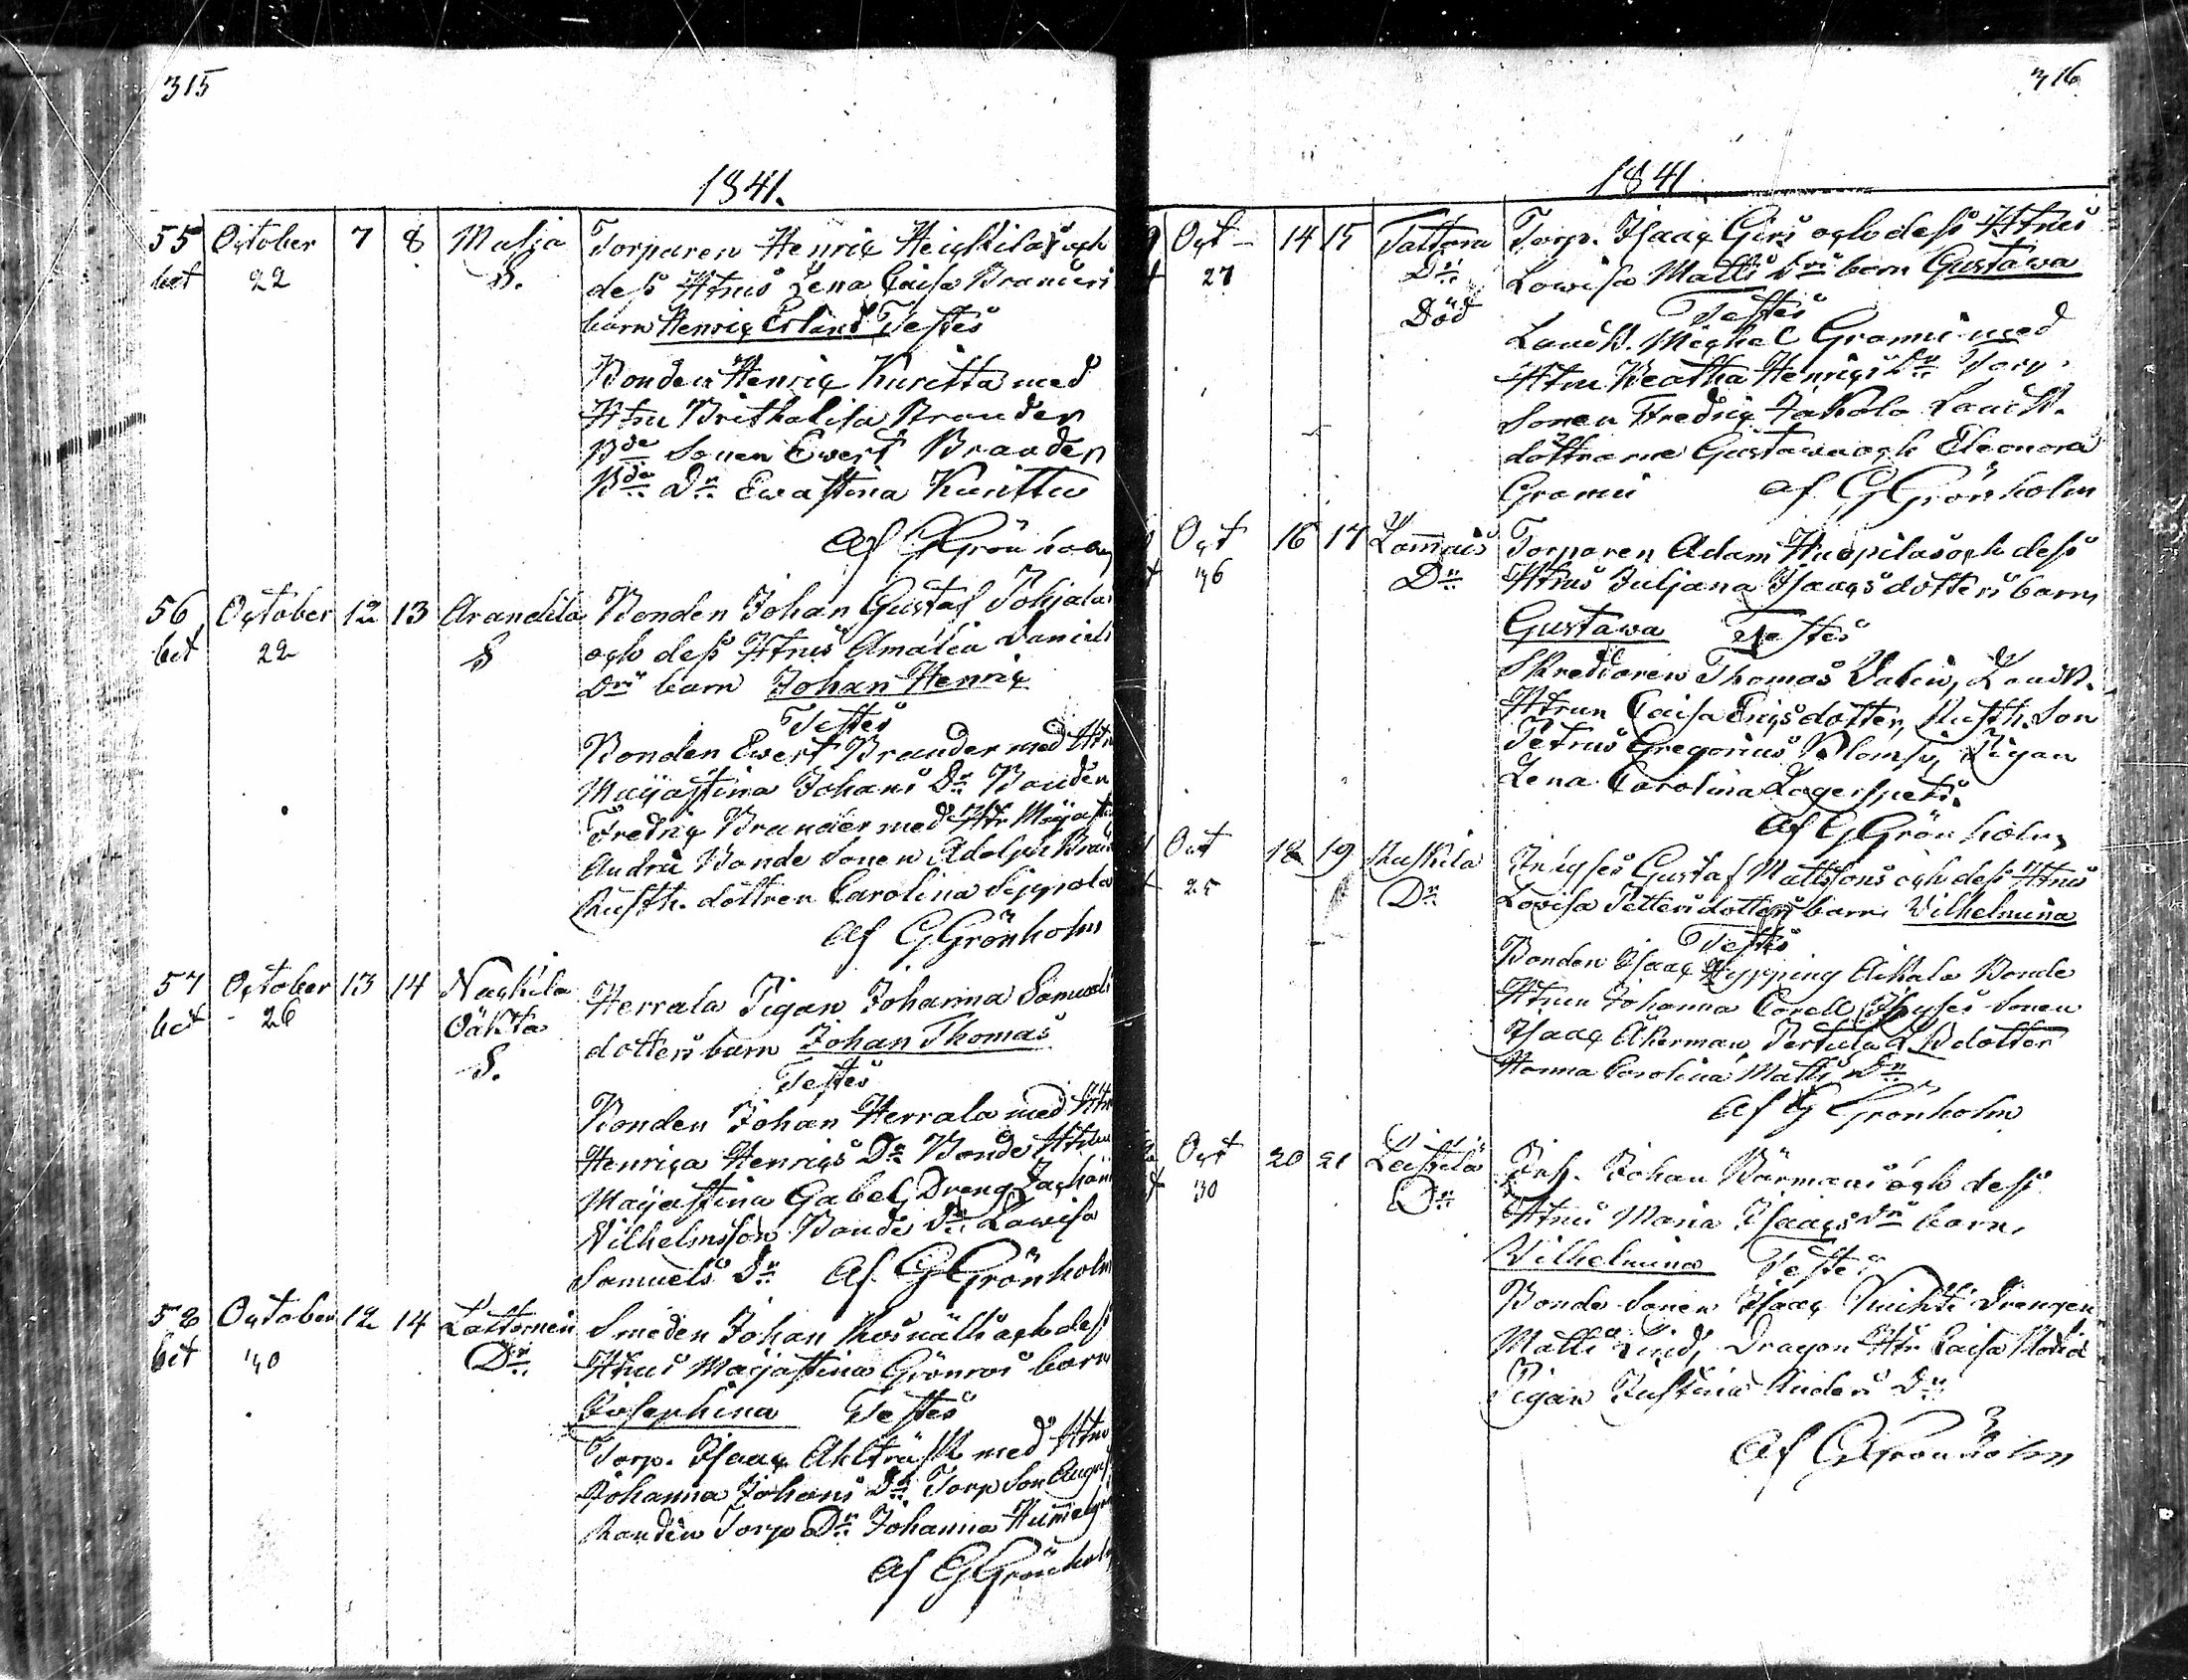 315
1841.
55 October 7 8 Masja Torparen Henric Heickiläs och
bet 22 S. dess Htrus Lena Caisa Branders
barn Henric Erland Testes
Bonden Henric Kuritta med
Htru Brithalisa Brander
Bde Sonen Ewert Brander
Bde Dr Ewastina Kuritta
Af G Grönholm
56 October 12 13 Arandila Bonden Johan Gustaf Pohjala
bet 22 S och dess Htrus Amalia Daniels
Drs barn Johan Henric
Testes
Bonden Ewert Brander med Htr
Majastina Johans Dr Bonden
Fredric Brander med Htr Majast
Andra Bonde Sonen Adolph Bran
Rusth. dottren Carolina Sippola
Af G Grönholm
57 October 13 14 Nackila Herrala Pigan Johanna Samuels
bet 26 Oäkta dotters barn Johan Thomas
S. Testes
Bonden Johan Herrala med Htr
Henrica Henrics Dr Bonde Htrun
Majastina Gabels Dreng
Vilhelmsson Bonde Dr Lowisa
Samuels Dr Af G Grönholm
58 October 12 14 Lattomeri Smeden Johan och dess
bet 30 Dr Htrus Majastina Grönros barn
Josephina Testes
Torp. Isaac Ahlträsk med Htru
Johanna Johans Dr Torp Son August
Torp Dr Johanna
Af G Grönholm
316
1841
9 Oct 14 15 Tattara Torp. Isaac Girs och dess Htrus
t 27 Dr Lowisa Matts Drs barn Gustawa
Död Testes
Landb. Michel Grami med
Htru Beatha Henrics Dr Torp.
Sonen Fredric Jakola Landb.
döttrarne Gustawa och Eleonora
Grami af G Grönholm
Oct 16 17 Lammais Torparen Adam Huspilas och dess
t 36 Dr Htrus Juljana Isaacs dotters barn
Gustawa Testes
Skreddaren Thomas Landb.
Htrun Caisa Erics dotter, Rusth. Son
Petrus Gregorius Blomfv, Pigan
Lena Carolina Lagerspets.
Af G Grönholm
Oct 18 19 Kuskila Inhyses Gustaf Mattssons och dess Htrus
t 25 Dr Lovisa Petters dotters barn Vilhelmina
Testes
Bonden Isaac Hypping Aikala Bonde
Htrun Johanna Corell Inhyses Sonen
Isaac Åkerman, Pertula dotter
Hanna Carolina Matts Dr
Af G Grönholm
Oct 20 21 Leistilä Inh. Johan Börmans och dess
t 30 Dr Htrus Maria Isaacs Drs barn,
Vilhelmina Testes
Bonde Sonen Isaac Drengen
Matts Lind, Dragon Htr Caisa Modig
Pigan Justina Anders Dr
Af G Grönholm